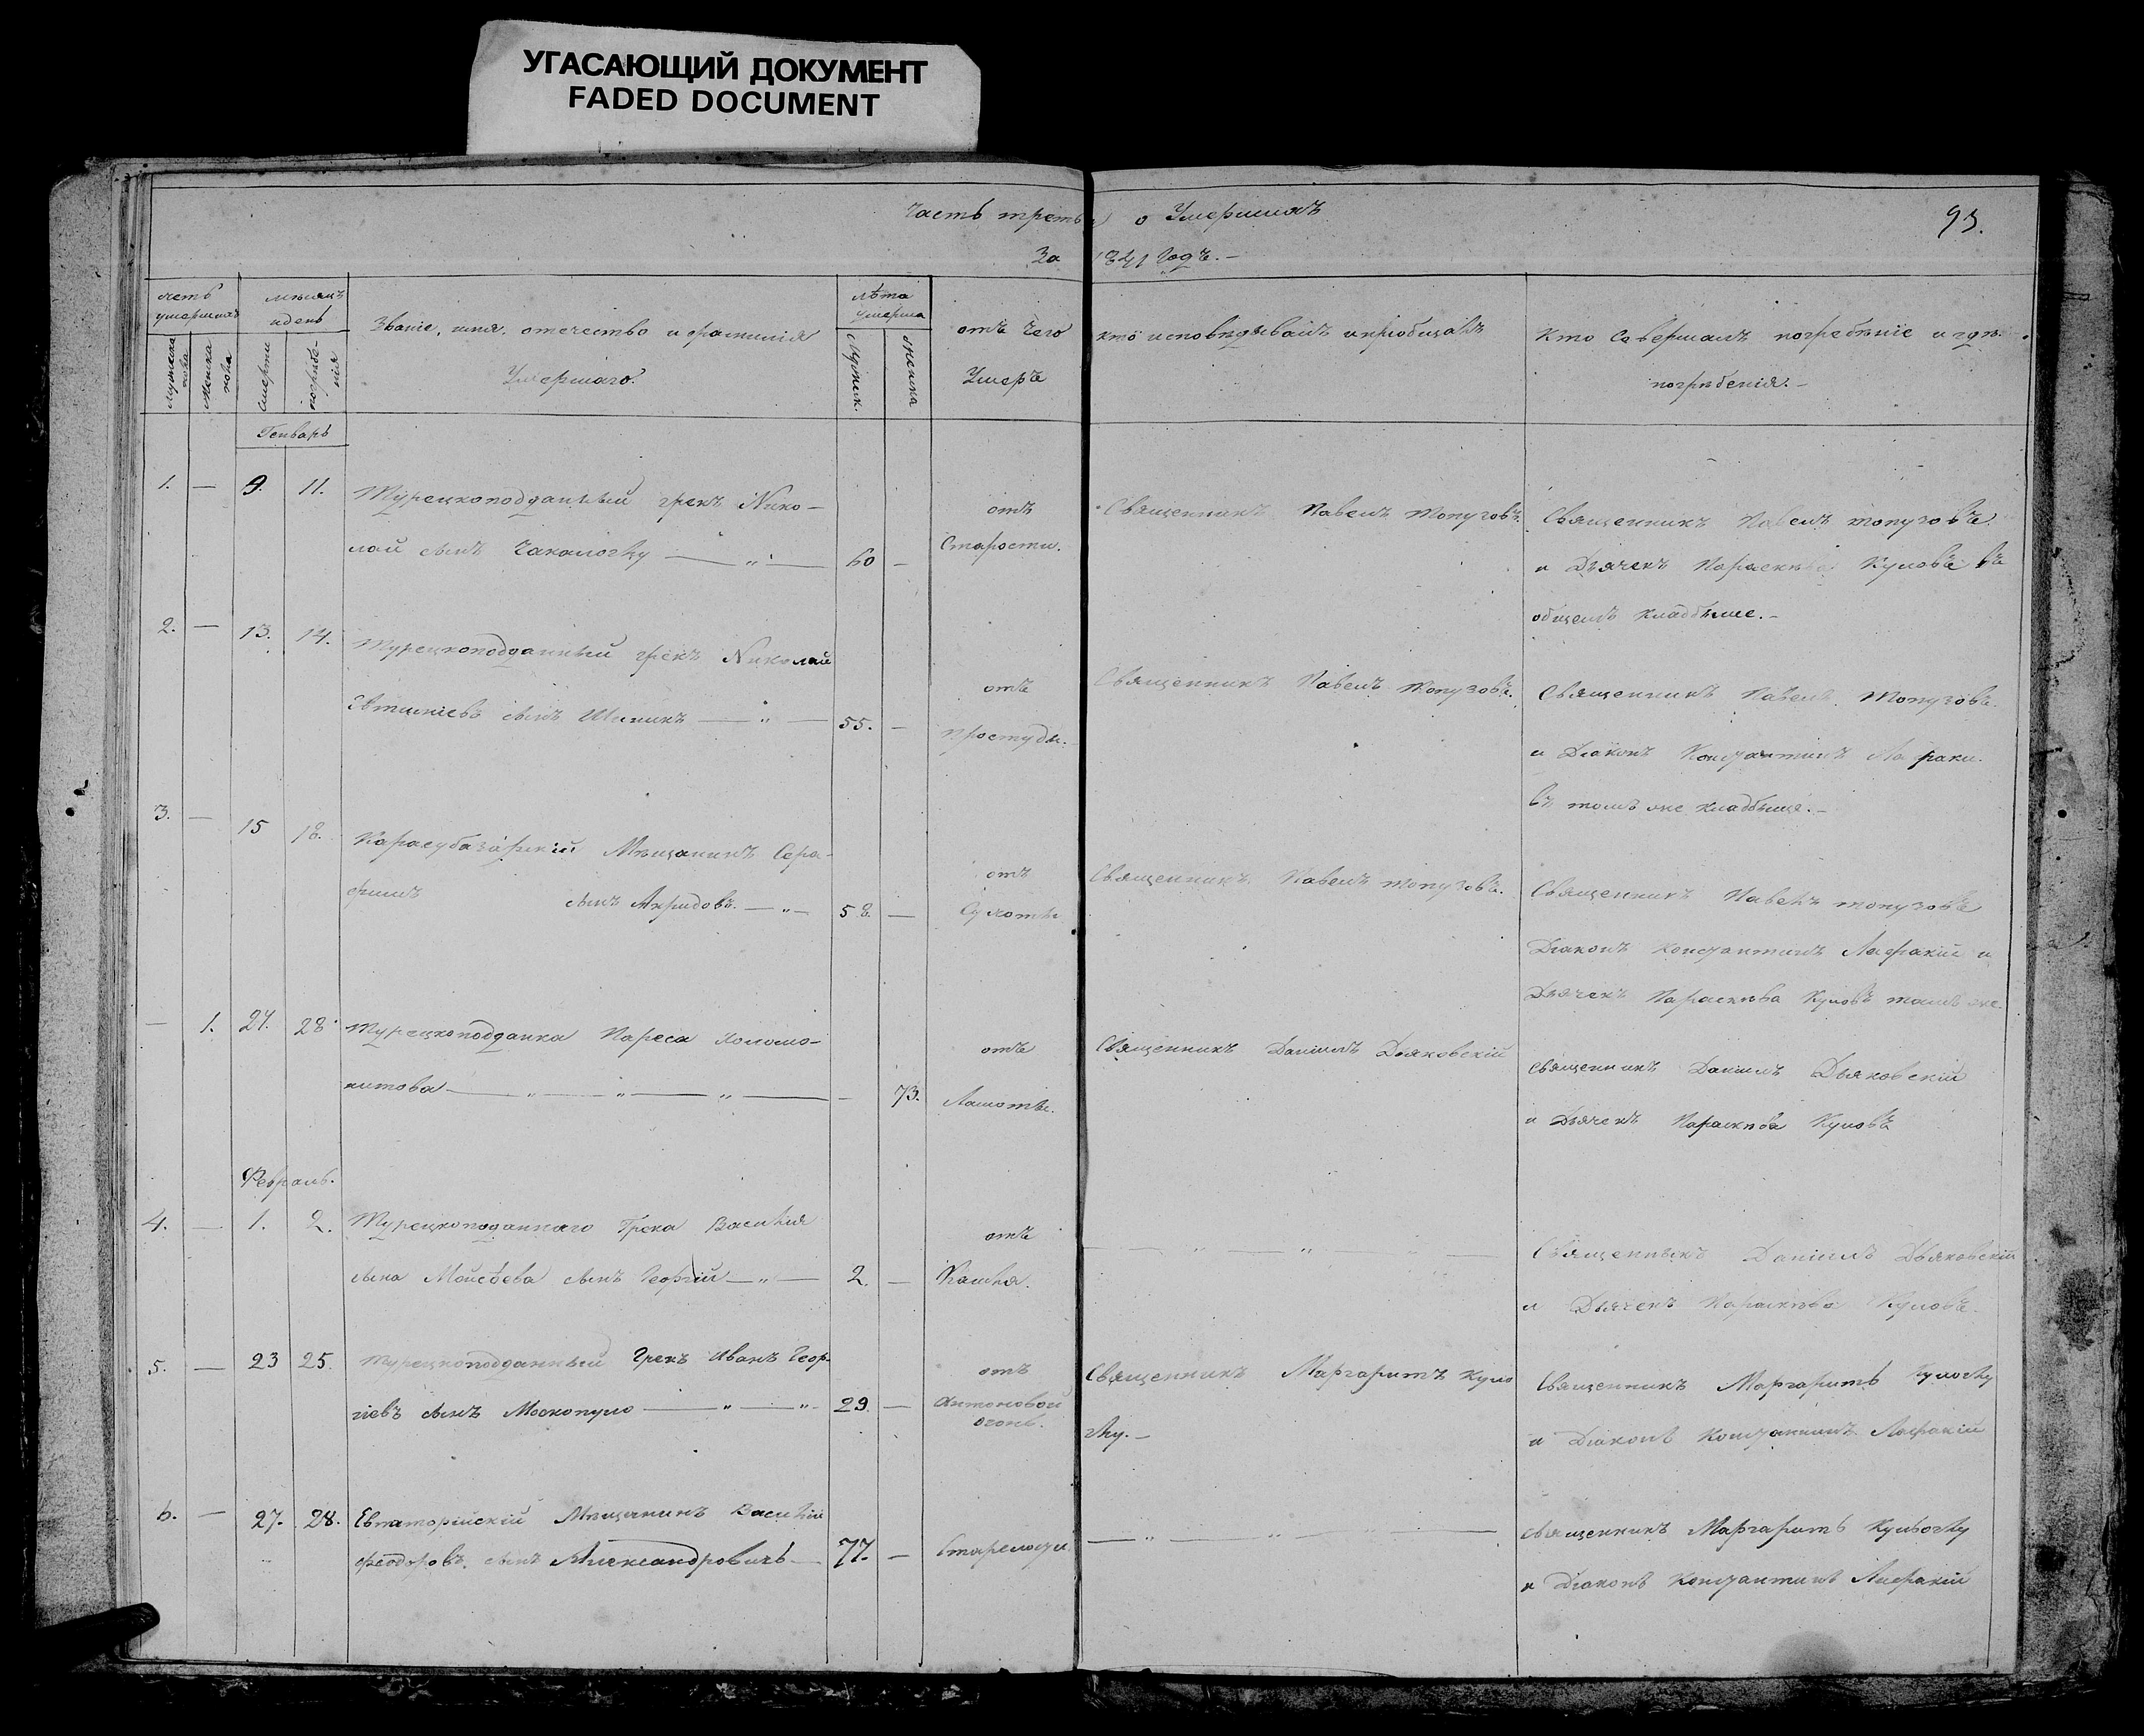 УГАСАЮЩИЙ ДОКУМЕНТ
FADED DOCUMENT
Часть третья о Умершихъ
93.
За 1841 Годъ. —
счетъ умершихъ
мѣсяцъ и день
Званіе, имя, отечество и фамилія
Умершаго.
лѣта умерша
отъ чего
Умеръ
кто исповѣдывалъ и пріобщалъ
Кто Совершалъ погребѣніе и гдѣ
погрѣбенія. —
мужска пола
женска пола
смерти
погрѣбенія
мужеск.
женска
Генварь
1. — 9. 11. Турецкоподданный грекъ Нико-
лай сынъ — „ — 60 —
отъ
Старости.
Священникъ Павелъ Топузовъ.
Священникъ Павелъ Топузовъ
и Дьячекъ Параскѣва Куловъ въ
общемъ кладбище. —
2. — 13. 14. Турецкоподданный грекъ Николай
сынъ — „ — 55. —
отъ
простуды.
Священникъ Павелъ Топузовъ.
Священникъ Павелъ Топузовъ.
и Діаконъ Константинъ
въ томъ же кладбище. —
3. — 15 18. Карасубазарскій Мѣщанинъ Сера-
фимъ сынъ Акридовъ — „ — 58. —
отъ
Сухоты
Священникъ Павелъ Топузовъ.
Священникъ Павелъ Топузовъ
Діаконъ Константинъ Лафакій и
Дьячекъ Параскѣва Куловъ тамъ же.
— 1. 27. 28. Турецкоподданка Пареса
— „ — „ — „ — — 73.
отъ
Ламоты.
Священникъ Даніилъ Дьяковскій
Священникъ Даніилъ Дьяковскій
и Дьячекъ Параскѣва Куловъ
Февраль.
4. — 1. 2. Турецкоподаннаго Грека Василія
сына Моисѣева сынъ Георгій — „ — 2. —
отъ
Кашля.
— „ — „ — „ —
Священникъ Даніилъ Дьяковскій
и Дьячекъ Параскѣва Куловъ.
5. — 23 25. Турецкоподданный Грекъ Иванъ Геор-
гіевъ сынъ Москопуло — „ — „ 29. —
отъ
Антоновой
огонь.
Священникъ Маргаритъ Куло
глу. —
Священникъ Маргаритъ Кулоглу
и Діаконъ Константинъ Лафакій
6. — 27. 28. Евпаторійскій Мѣщанинъ Василій
Феодоровъ сынъ Александровичъ — 77. —
— „ — „ — „ —
Священникъ Маргаритъ Кулоглу
и Діаконъ Константинъ Лафакій